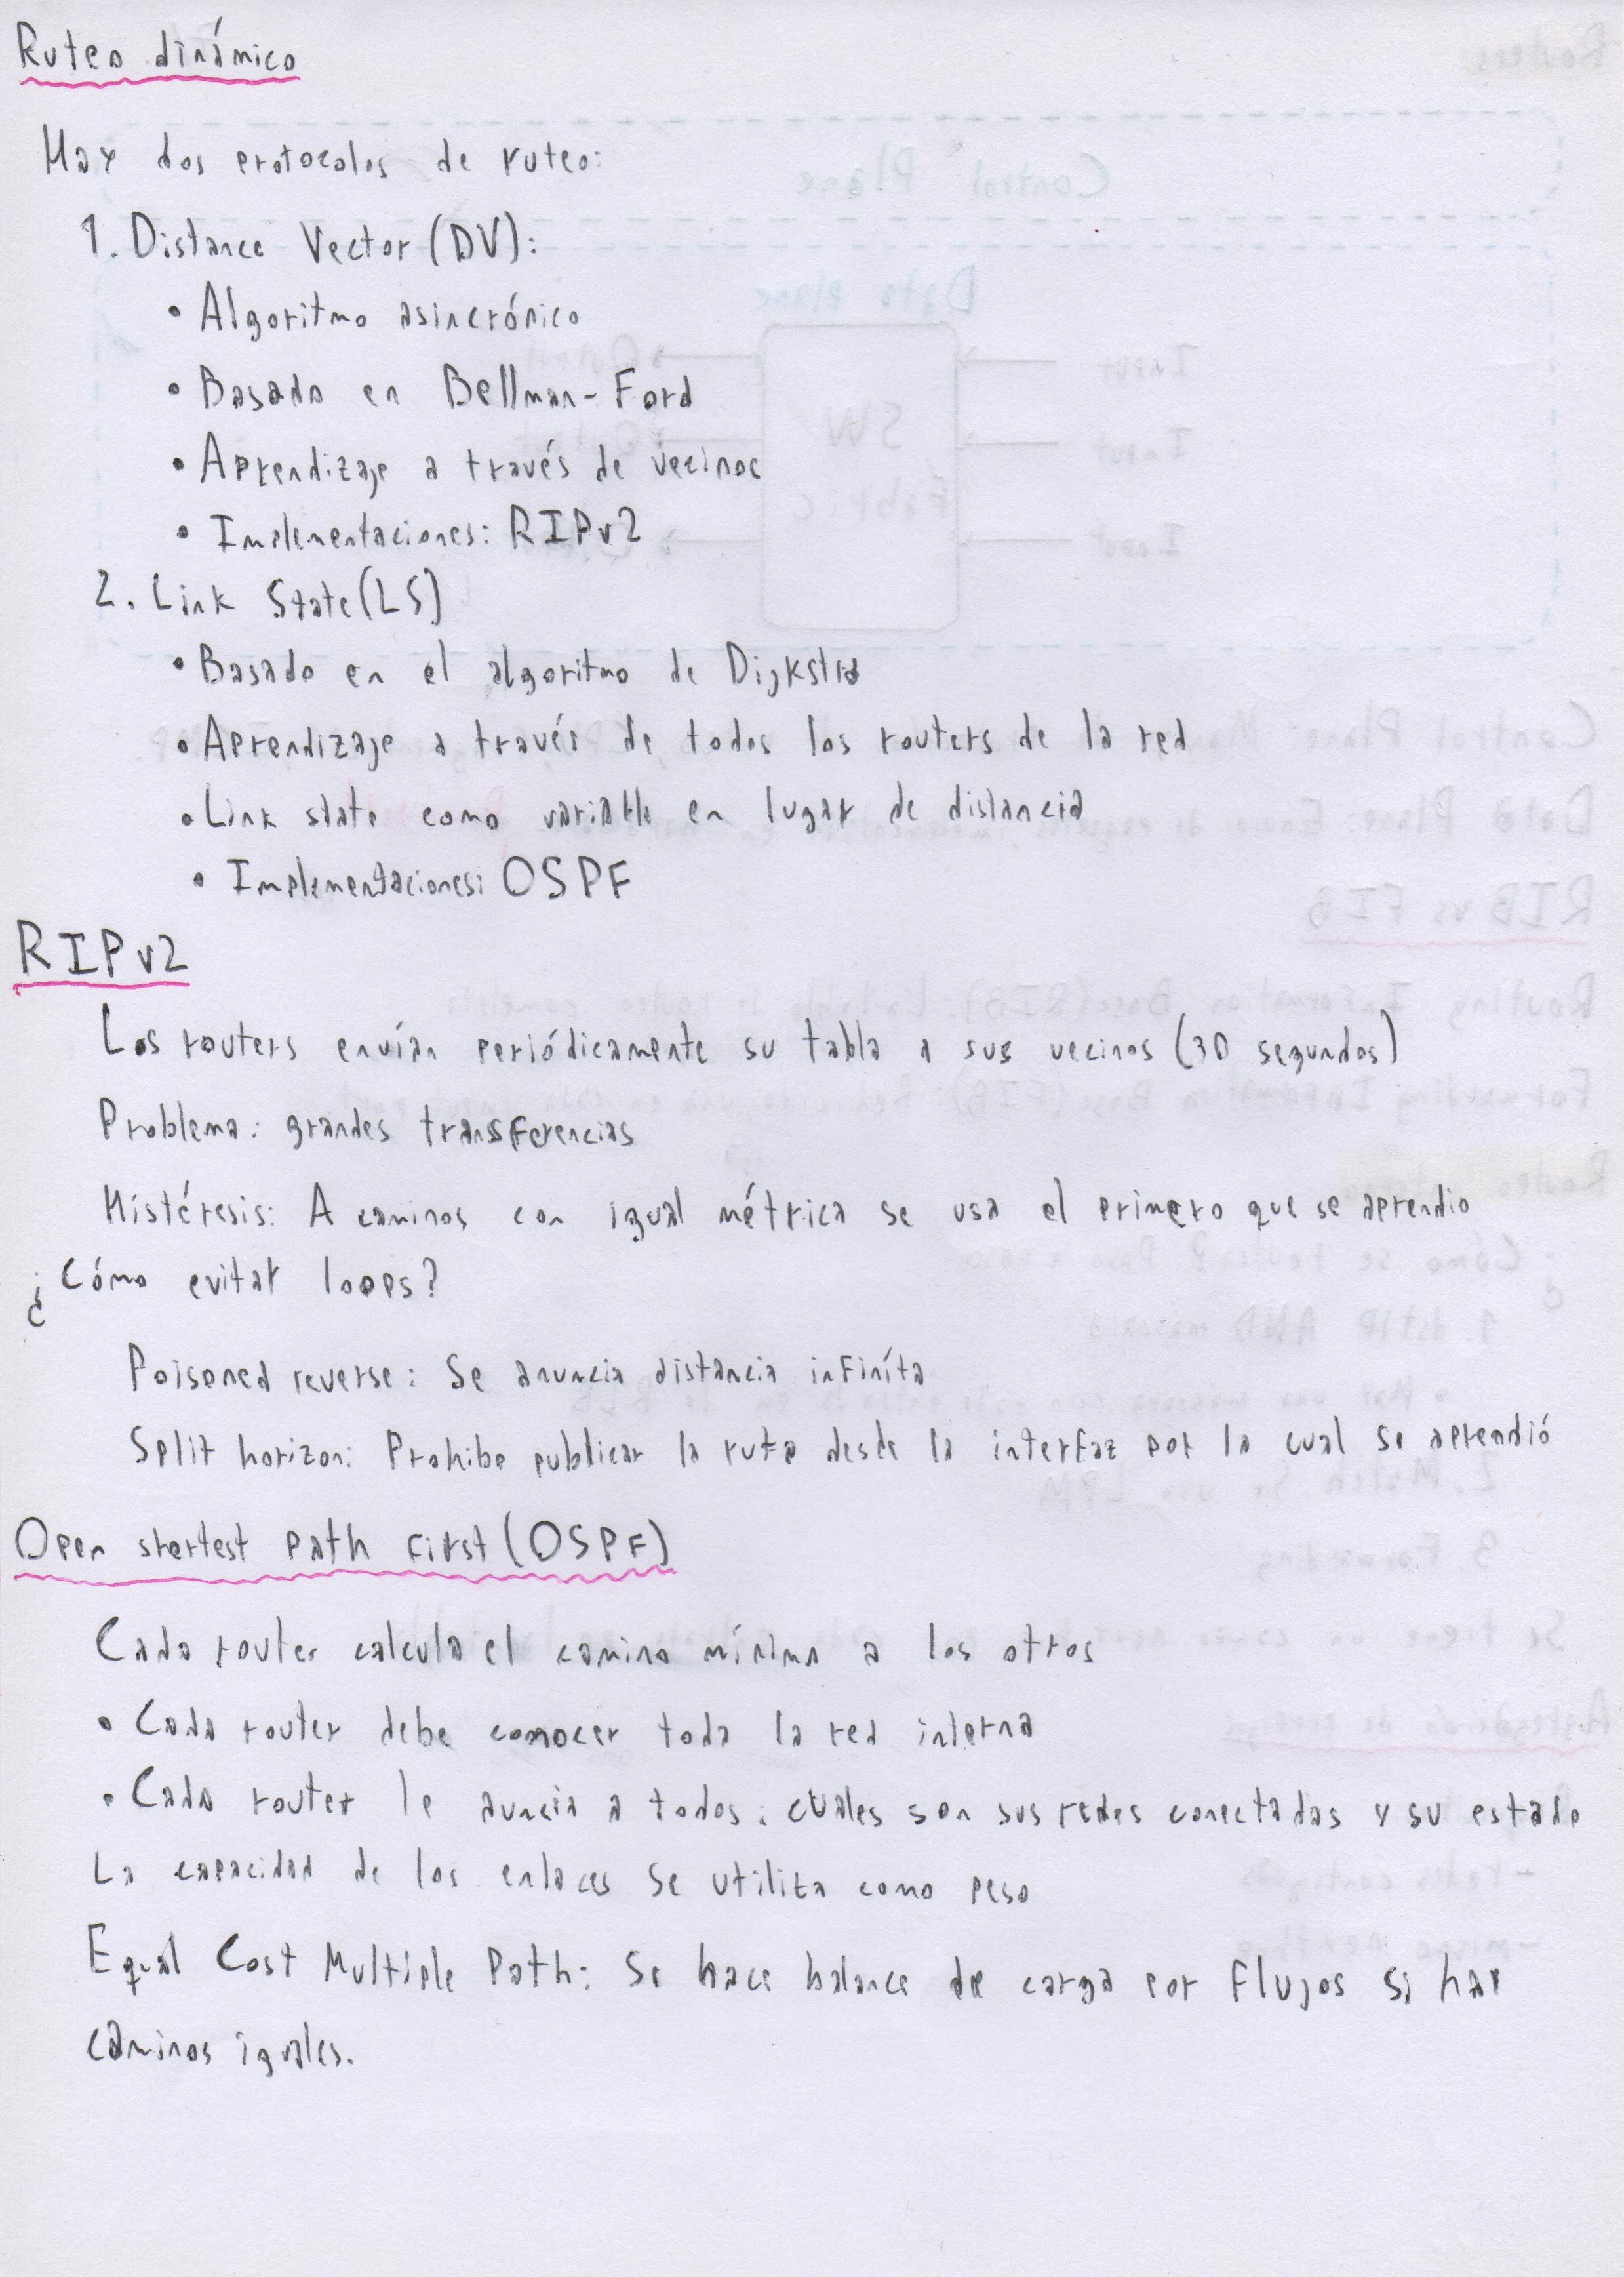 Ruteo dinámico
Hay dos protocolos de ruteo:
1. Distance Vector (DV):
• Algoritmo asincrónico
• Basado en Bellman-Ford
• Aprendizaje a través de vecinos
• Implementaciones: RIPv2
2. Link State (LS)
• Basado en el algoritmo de Dijkstra
• Aprendizaje a través de todos los routers de la red
• Link state como variable en lugar de distancia
• Implementaciones: OSPF
RIPv2
Los routers envían periódicamente su tabla a sus vecinos (30 segundos)
Problema: grandes transferencias
Histéresis: A caminos con igual métrica se usa el primero que se aprendio
¿Cómo evitar loops?
Poisoned reverse: Se anuncia distancia infiníta
Split horizon: Prohibe publicar la ruta desde la interfaz por la cual se aprendió
Open shortest path first (OSPF)
Cada router calcula el camino mínimo a los otros
• Cada router debe conocer toda la red interna
• Cada router le auncia a todos: cuales son sus redes conectadas y su estado
La capacidad de los enlaces se utiliza como peso
Equal Cost Multiple Path: Se hace balance de carga por flujos si hay
caminos iguales.